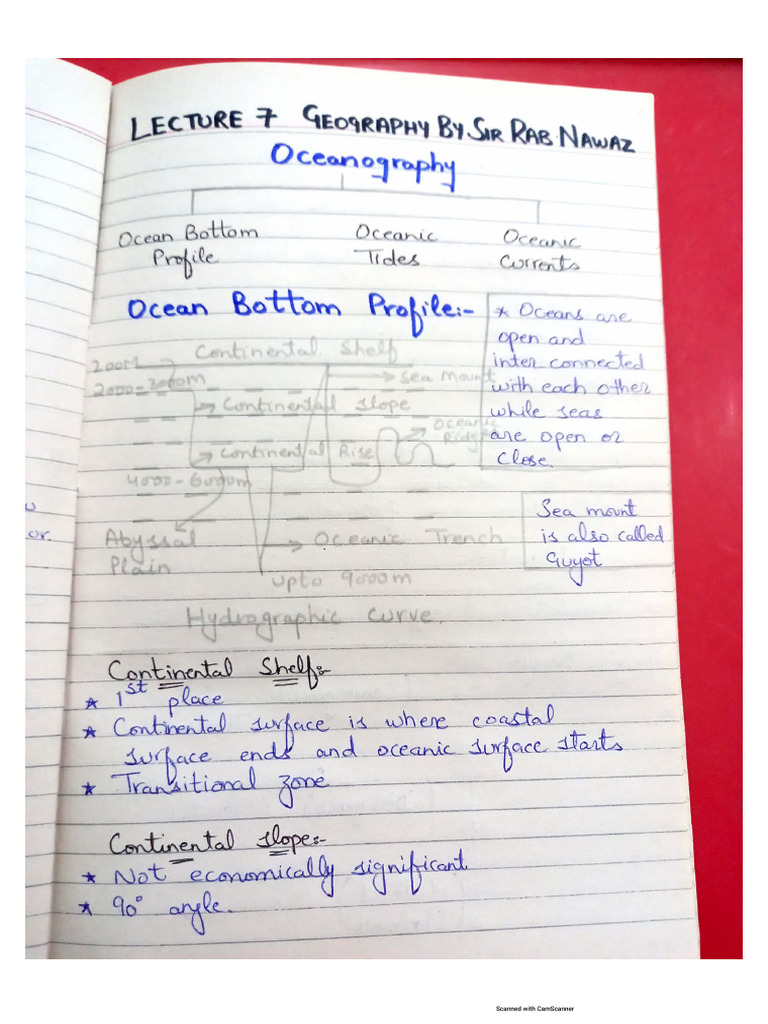 LECTURE 7 GEOGRAPHY BY SIR RAB NAWAZ
Oceanography
Ocean Bottom Profile
Oceanic Tides
Oceanic Currents
Ocean Bottom Profile:-
* Oceans are
open and
inter connected
with each other
while seas
are open or
close.
200M
Continental Shelf
2000-3000m
Sea mount
Continental slope
Oceanic
Ridge
Continental Rise
4000-6000m
Sea mount
is also called
Guyot
Abyssal
Plain
Oceanic Trench
upto 9000m
Hydrographic curve.
or.
Continental Shelf:-
* 1st place
* Continental surface is where coastal
surface ends and oceanic surface starts
* Transitional zone
Continental slope:-
* Not economically significant
* 90° angle.
Scanned with CamScanner